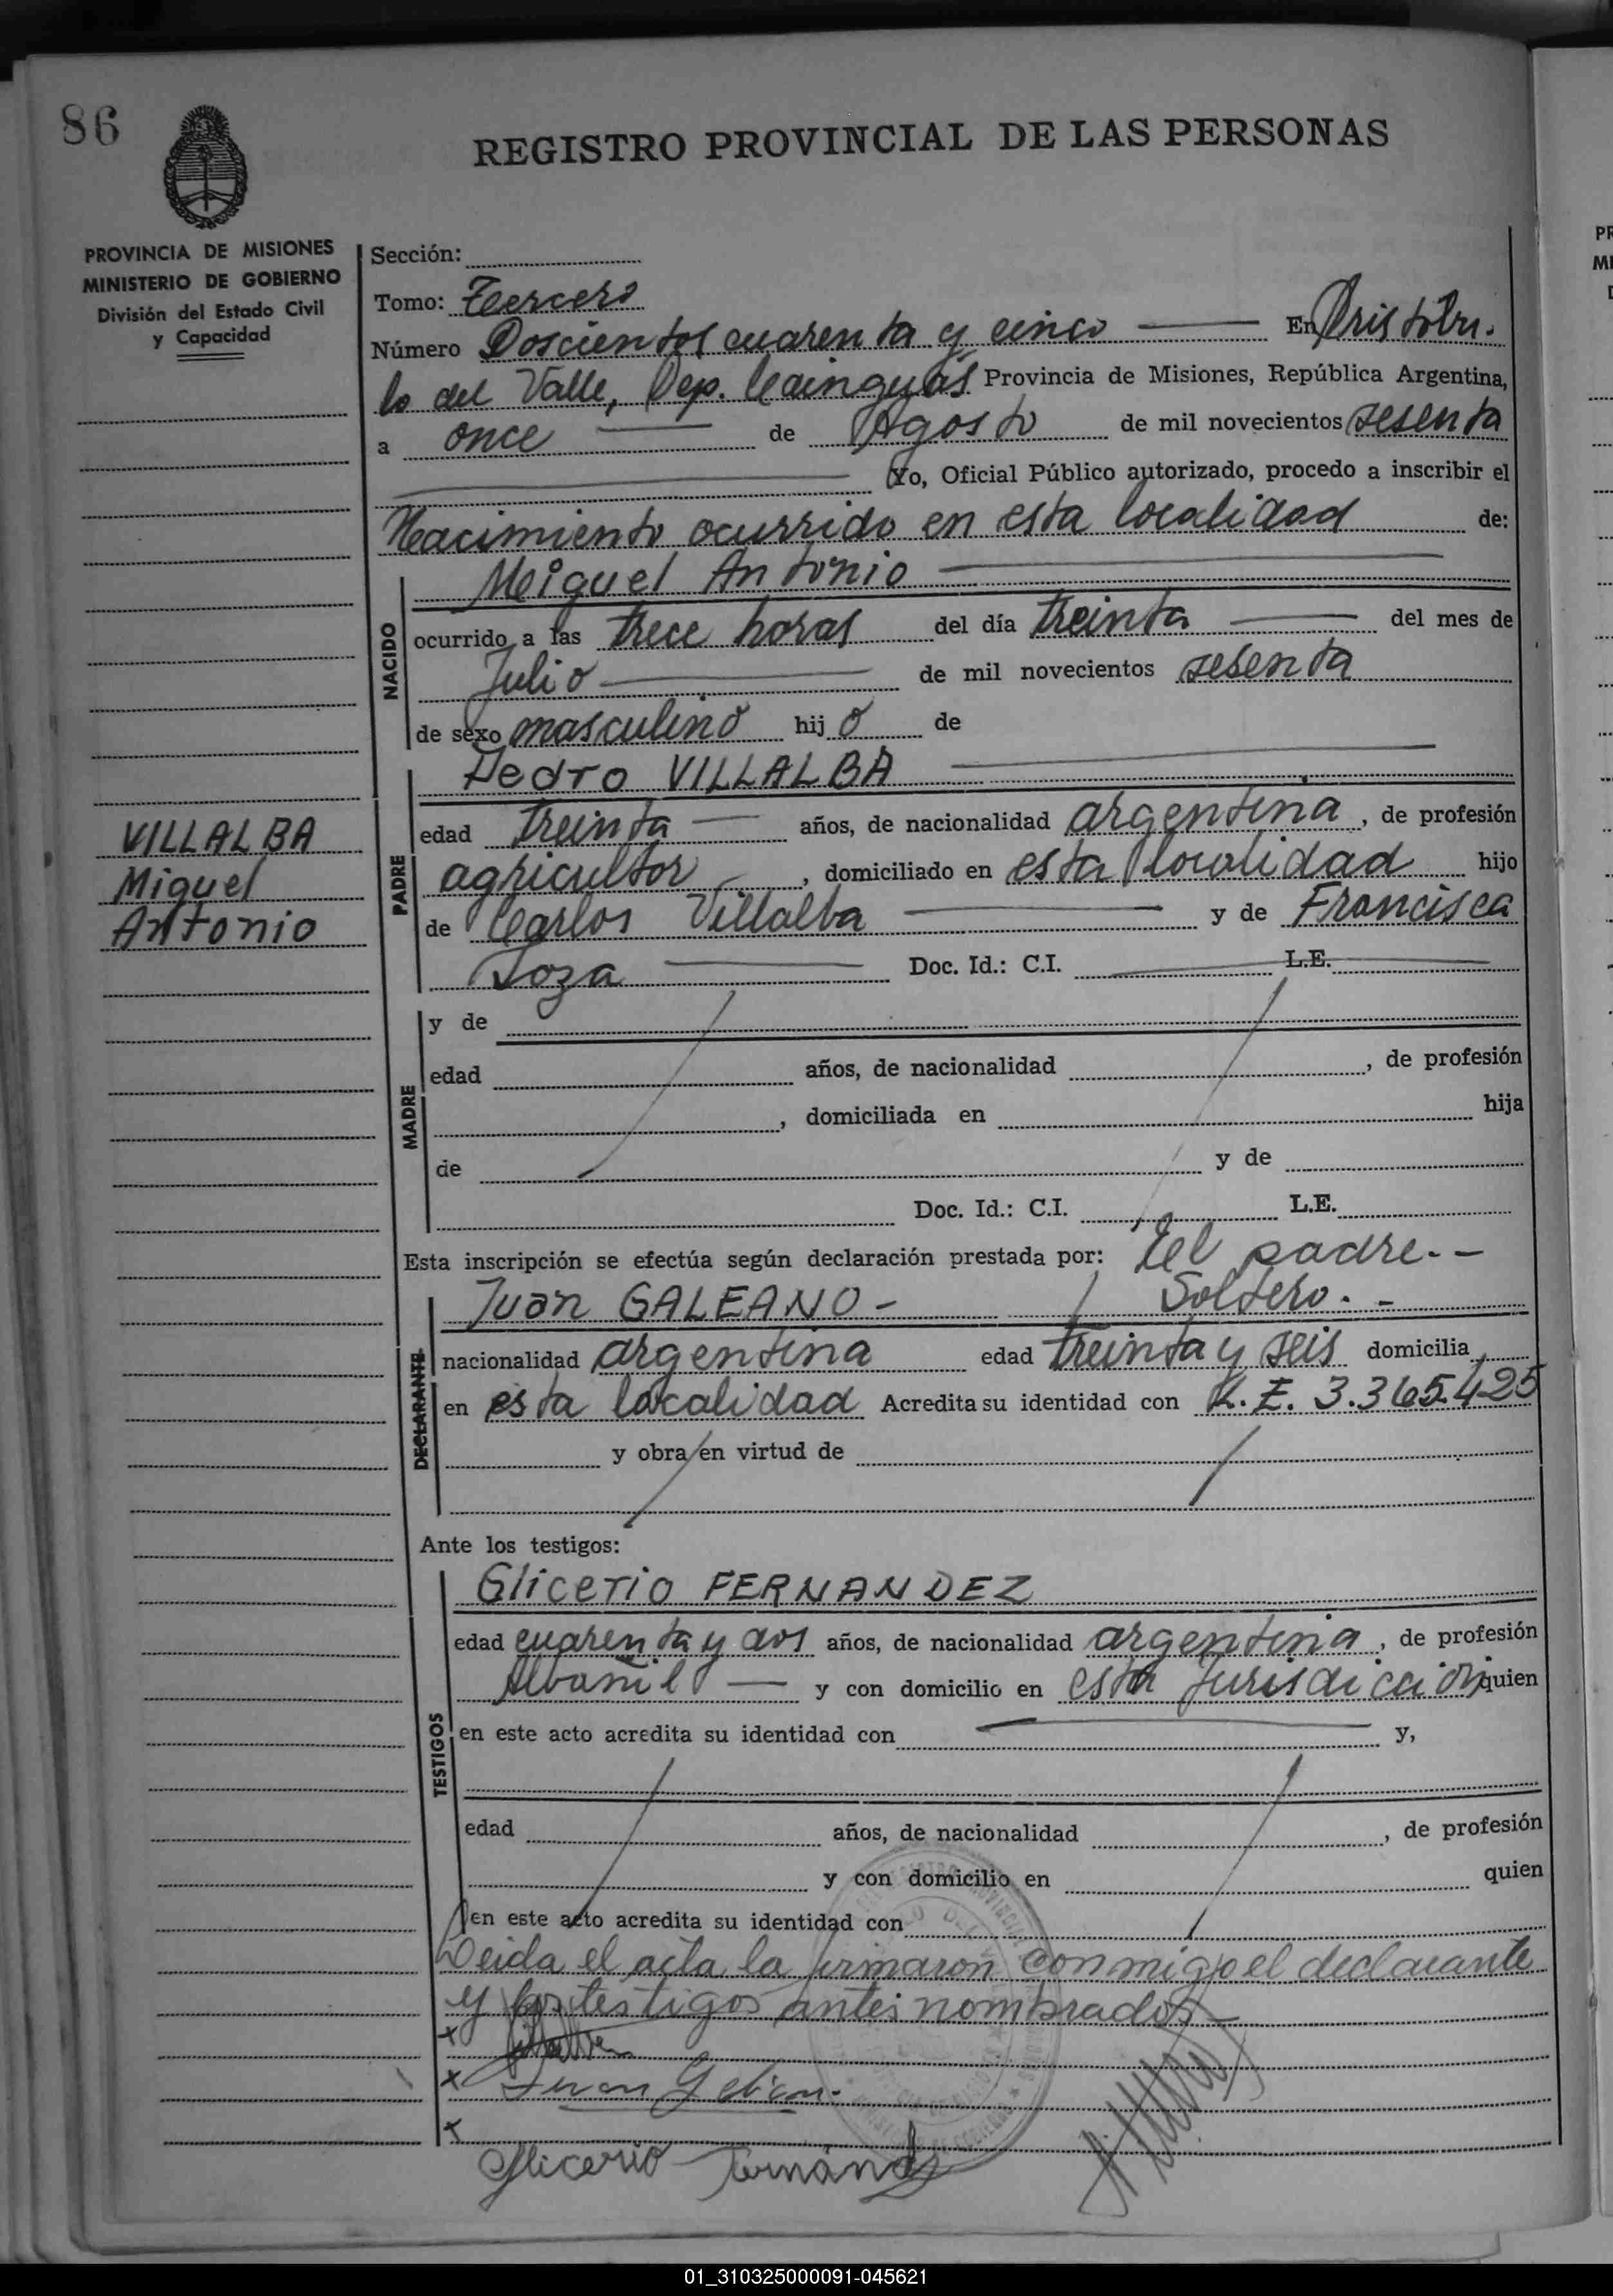 86
REGISTRO PROVINCIAL DE LAS PERSONAS
PROVINCIA DE MISIONES
MINISTERIO DE GOBIERNO
División del Estado Civil
y Capacidad
Sección:
Tomo: Tercero
Número Doscientos cuarenta y cinco En Aristóbu-
lo del Valle, Dep. Cainguás Provincia de Misiones, República Argentina,
a once de Agosto de mil novecientos sesenta
Yo, Oficial Público autorizado, procedo a inscribir el
Nacimiento ocurrido en esta localidad de:
NACIDO
Miguel Antonio
ocurrido a las trece horas del día treinta del mes de
Julio de mil novecientos sesenta
de sexo masculino hijo de
PADRE
Pedro VILLALBA
edad treinta años, de nacionalidad argentina, de profesión
agricultor, domiciliado en esta localidad hijo
de Carlos Villalba y de Francisca
Doc. Id.: C.I. L.E.
VILLALBA
Miguel
Antonio
MADRE
y de
edad años, de nacionalidad , de profesión
, domiciliada en hija
de y de
Doc. Id.: C.I. L.E.
Esta inscripción se efectúa según declaración prestada por: El padre.-
DECLARANTE
Juan GALEANO - Soltero. -
nacionalidad argentina edad treinta y seis domicilia
en esta localidad Acredita su identidad con L.E. 3.365.425
y obra en virtud de
Ante los testigos:
TESTIGOS
Glicerio FERNANDEZ
edad cuarenta y dos años, de nacionalidad argentina, de profesión
Albañil y con domicilio en esta Jurisdicción quien
en este acto acredita su identidad con y,
edad años, de nacionalidad , de profesión
y con domicilio en quien
en este acto acredita su identidad con
Leida el acta la firmaron conmigo el declarante
y los testigos antes nombrados
x
x Juan
x
Glicerio Fernández
01_310325000091-045621